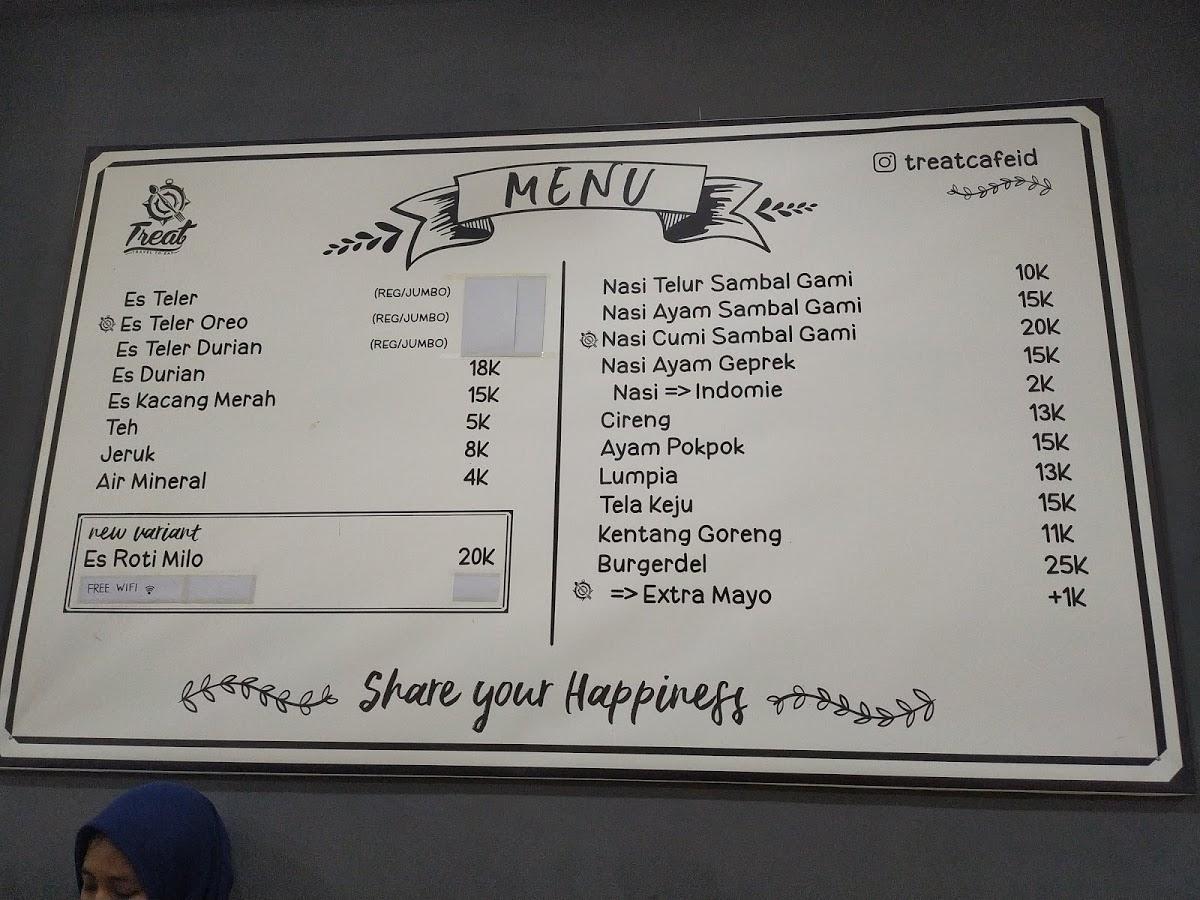 MENU
treatcafeid
Treat
TRAVEL TO EAT
Es Teler (REG/JUMBO)
Es Teler Oreo (REG/JUMBO)
Es Teler Durian (REG/JUMBO)
Es Durian 18K
Es Kacang Merah 15K
Teh 5K
Jeruk 8K
Air Mineral 4K
new variant
Es Roti Milo 20K
FREE WIFI
Nasi Telur Sambal Gami 10K
Nasi Ayam Sambal Gami 15K
Nasi Cumi Sambal Gami 20K
Nasi Ayam Geprek 15K
Nasi => Indomie 2K
Cireng 13K
Ayam Pokpok 15K
Lumpia 13K
Tela Keju 15K
Kentang Goreng 11K
Burgerdel 25K
=> Extra Mayo +1K
Share your Happiness